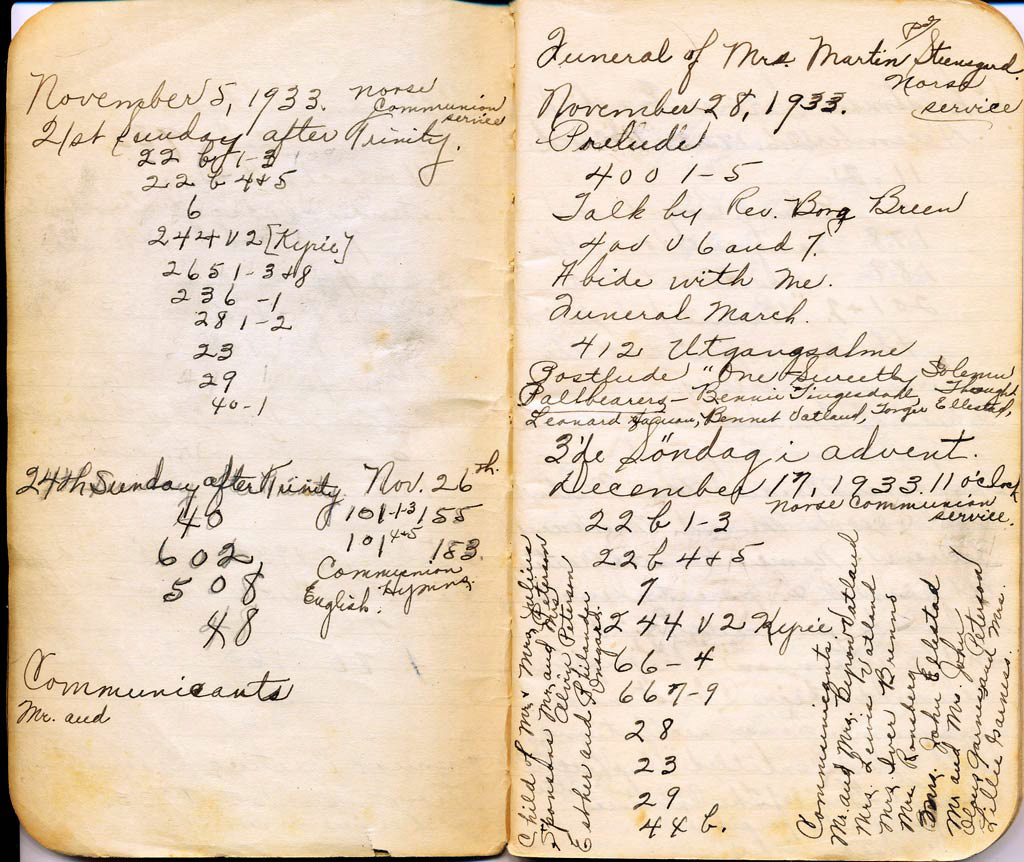 November 5, 1933. Norse
Communion
service
21st Sunday after Trinity.
22 b 1-3
22 b 4+5
6
244 V 2 [Kyrie]
265 1-3+8
236 -1
28 1-2
23
29
40-1
24th Sunday after Trinity. Nov. 26th.
40 101 1-3 155
602 101 4+5 183.
508 Communion
English. Hymns.
48
Communicants
Mr. and
Funeral of Mrs. Martin Steensgard
Norse
November 28, 1933. service
Prelude
400 1-5
Talk by Rev. Borg Breen
400 V 6 and 7.
Abide with Me.
Funeral March.
412 Utgangsalme
Postlude "One Sweetly Solemn
Thought
Pallbearers - Bennie Tingesdahl,
Leonard Bennet Vatland, Torger Ellestad,
3'de Söndag i advent.
December 17, 1933. 11 o'clock
Norse Communion
service.
22 b 1-3
22 b 4+5
7
244 V 2 Kyrie
66-4
66 7-9
28
23
29
44 b.
Child of Mr. & Mrs. Julius
Sponsors Mr. and Mrs. Peterson
Alvin Peterson
Esther and Philander
Communicants
Mr. and Mrs. Vatland
Mrs. Lewis Vatland
Mrs. Iver Brenns
Mrs. Ronsberg
Mrs. John Ellestad
Mr. and Mrs. John
Peterson
Garness and Mrs.
Lillie Garness.